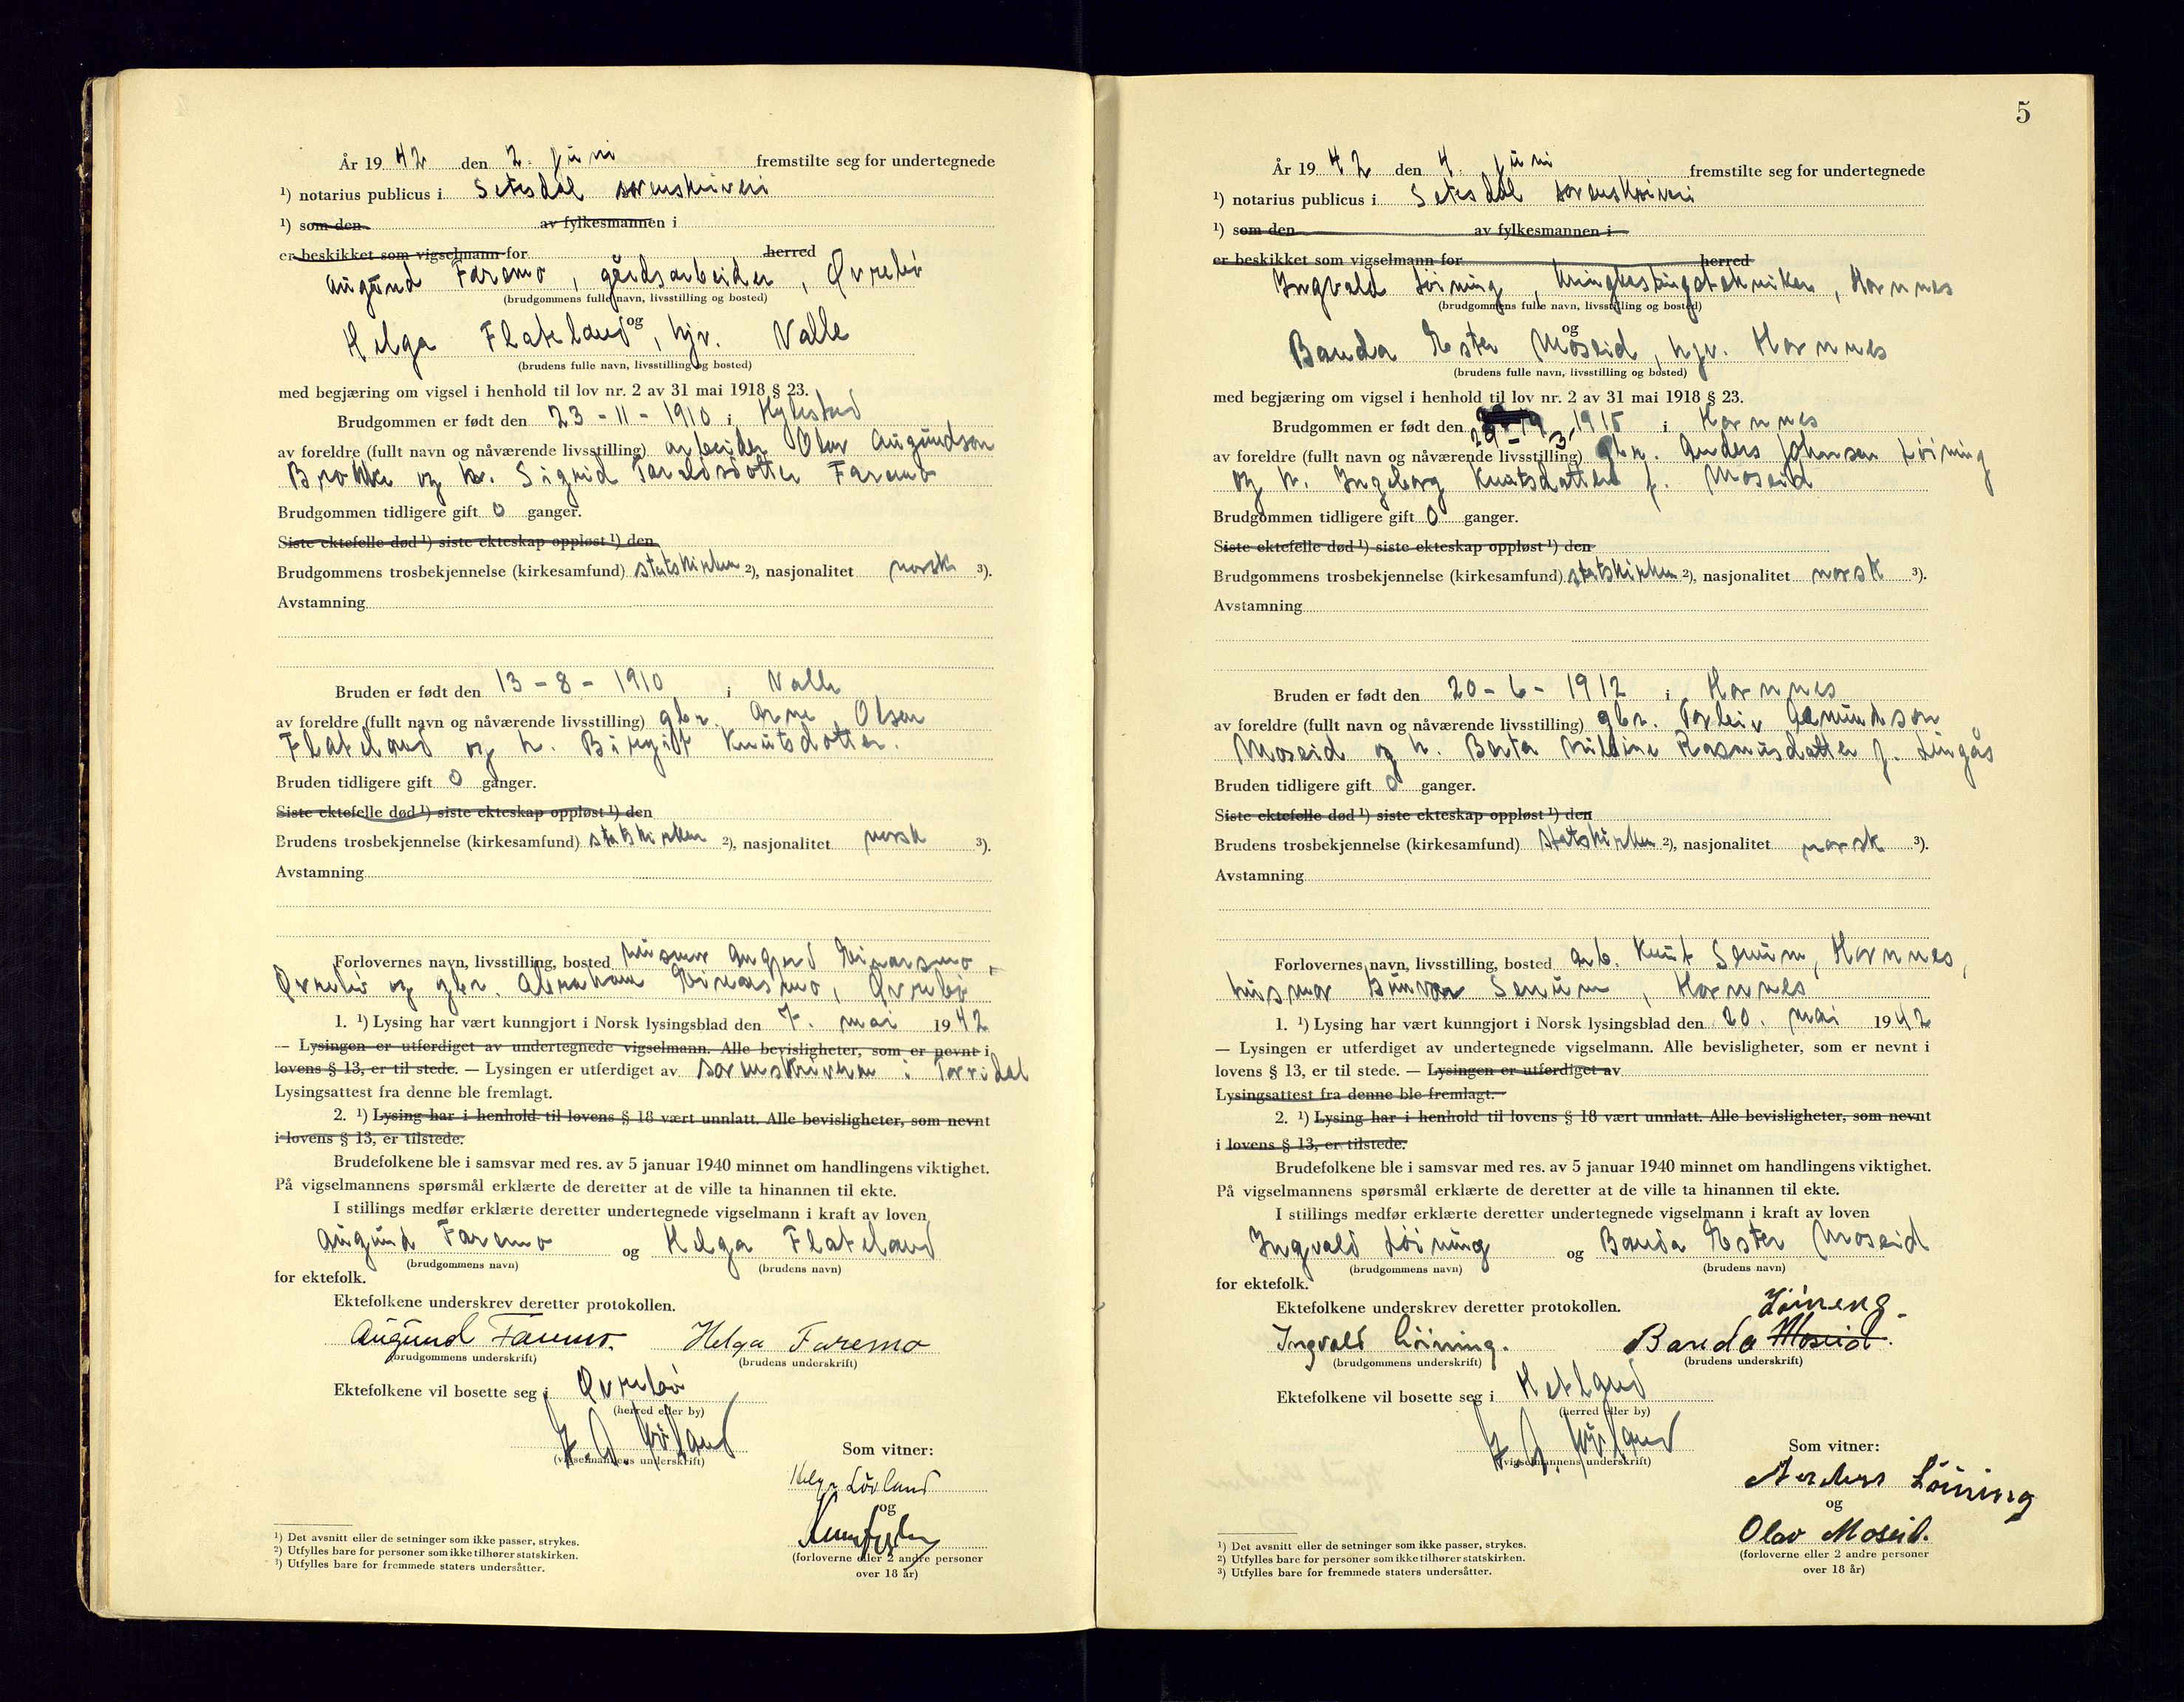 År 19 42 den 2. juni fremstilte seg for undertegnede
¹) notarius publicus i Setesdal sorenskriveri
¹) som den av fylkesmannen i
er beskikket som vigselmann for herred
Augund Faremo, gårdsarbeider, Øvrebö
(brudgommens fulle navn, livsstilling og bosted)
og
Helga Flateland, hjv. Valle
(brudens fulle navn, livsstilling og bosted)
med begjæring om vigsel i henhold til lov nr. 2 av 31 mai 1918 § 23.
Brudgommen er født den 23 - 11 - 1910 i Hylestad
av foreldre (fullt navn og nåværende livsstilling) arbeider Olav Augundson
Brokke og h. Sigrid Taraldsdotter Faremo
Brudgommen tidligere gift 0 ganger.
Siste ektefelle død ¹) siste ekteskap oppløst ¹) den
Brudgommens trosbekjennelse (kirkesamfund) statskirken ²), nasjonalitet norsk ³).
Avstamning
Bruden er født den 13 - 8 - 1910 i Valle
av foreldre (fullt navn og nåværende livsstilling) gbr. Arne Olsen
Flateland og h. Birgit Knutsdotter.
Bruden tidligere gift 0 ganger.
Siste ektefelle død ¹) siste ekteskap oppløst ¹) den
Brudens trosbekjennelse (kirkesamfund) statskirken ²), nasjonalitet norsk ³).
Avstamning
Forlovernes navn, livsstilling, bosted husmor Einarsmo,
Øvrebö og gbr. Abraham Einarsmo, Øvrebö
1. ¹) Lysing har vært kunngjort i Norsk lysingsblad den 7. mai 19 42
— Lysingen er utferdiget av undertegnede vigselmann. Alle bevisligheter, som er nevnt i
lovens § 13, er til stede. — Lysingen er utferdiget av sorenskriveren i Torridal
Lysingsattest fra denne ble fremlagt.
2. ¹) Lysing har i henhold til lovens § 18 vært unnlatt. Alle bevisligheter, som nevnt
i lovens § 13, er tilstede.
Brudefolkene ble i samsvar med res. av 5 januar 1940 minnet om handlingens viktighet.
På vigselmannens spørsmål erklærte de deretter at de ville ta hinannen til ekte.
I stillings medfør erklærte deretter undertegnede vigselmann i kraft av loven
Augund Faremo og Helga Flateland
(brudgommens navn) (brudens navn)
for ektefolk.
Ektefolkene underskrev deretter protokollen.
Augund Faremo. Helga Faremo
(brudgommens underskrift) (brudens underskrift)
Ektefolkene vil bosette seg i Øvrebö
(herred eller by)
(vigselmannens underskrift)
Som vitner:
Helge Lövland
og
(forloverne eller 2 andre personer
over 18 år)
¹) Det avsnitt eller de setninger som ikke passer, strykes.
²) Utfylles bare for personer som ikke tilhører statskirken.
³) Utfylles bare for fremmede staters undersåtter.
5
År 19 42 den 4. juni fremstilte seg for undertegnede
¹) notarius publicus i Setesdal sorenskriveri
¹) som den av fylkesmannen i
er beskikket som vigselmann for herred
Ingvald Löining, kringkastingstekniker, Hornnes
(brudgommens fulle navn, livsstilling og bosted)
og
Bauda Ester Moseid, hjv. Hornnes
(brudens fulle navn, livsstilling og bosted)
med begjæring om vigsel i henhold til lov nr. 2 av 31 mai 1918 § 23.
Brudgommen er født den 29 - 3 - 1915 i Hornnes
av foreldre (fullt navn og nåværende livsstilling) gbr. Anders Johnsen Löining
og h. Ingeborg Knutsdatter f. Moseid
Brudgommen tidligere gift 0 ganger.
Siste ektefelle død ¹) siste ekteskap oppløst ¹) den
Brudgommens trosbekjennelse (kirkesamfund) statskirken ²), nasjonalitet norsk ³).
Avstamning
Bruden er født den 20 - 6 - 1912 i Hornnes
av foreldre (fullt navn og nåværende livsstilling) gbr. Torleiv Gunundson
Moseid og h. Berta Rasmusdatter f. Lingås
Bruden tidligere gift 0 ganger.
Siste ektefelle død ¹) siste ekteskap oppløst ¹) den
Brudens trosbekjennelse (kirkesamfund) statskirken ²), nasjonalitet norsk ³).
Avstamning
Forlovernes navn, livsstilling, bosted arb. Knut Senum, Hornnes,
husmor Gunvor Senum, Hornnes
1. ¹) Lysing har vært kunngjort i Norsk lysingsblad den 20. mai 19 42
— Lysingen er utferdiget av undertegnede vigselmann. Alle bevisligheter, som er nevnt i
lovens § 13, er til stede. — Lysingen er utferdiget av
Lysingsattest fra denne ble fremlagt.
2. ¹) Lysing har i henhold til lovens § 18 vært unnlatt. Alle bevisligheter, som nevnt
i lovens § 13, er tilstede.
Brudefolkene ble i samsvar med res. av 5 januar 1940 minnet om handlingens viktighet.
På vigselmannens spørsmål erklærte de deretter at de ville ta hinannen til ekte.
I stillings medfør erklærte deretter undertegnede vigselmann i kraft av loven
Ingvald Löining og Bauda Ester Moseid
(brudgommens navn) (brudens navn)
for ektefolk.
Ektefolkene underskrev deretter protokollen.
Löineng
Ingvald Löining. Bauda Moseid.
(brudgommens underskrift) (brudens underskrift)
Ektefolkene vil bosette seg i Hetland
(herred eller by)
(vigselmannens underskrift)
Som vitner:
Anders Löining
og
Olav Moseid.
(forloverne eller 2 andre personer
over 18 år)
¹) Det avsnitt eller de setninger som ikke passer, strykes.
²) Utfylles bare for personer som ikke tilhører statskirken.
³) Utfylles bare for fremmede staters undersåtter.